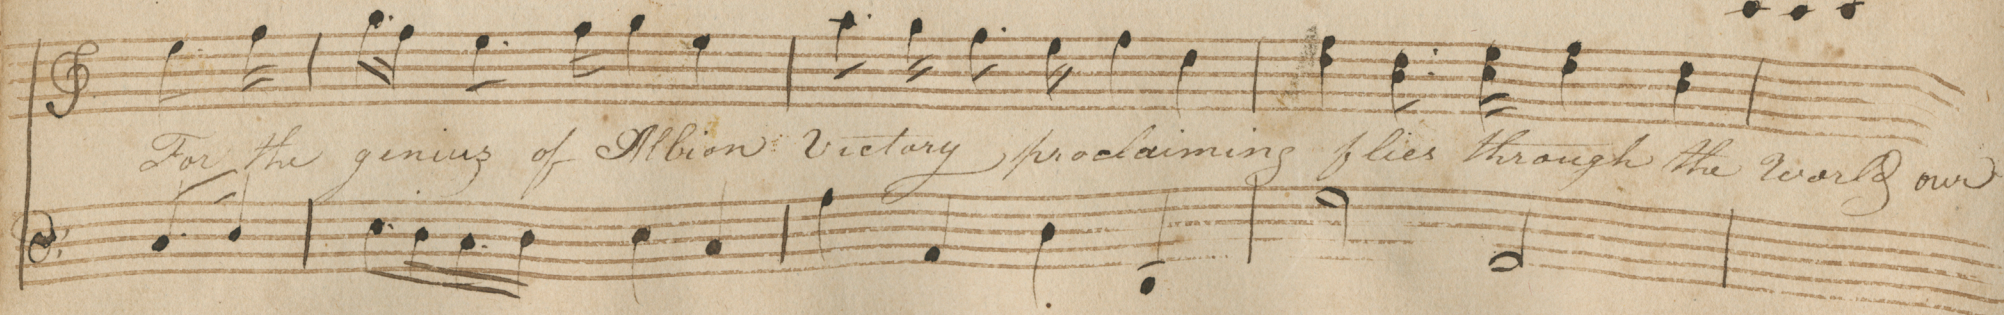 For the genius of Albion Victory proclaiming flies through the World our